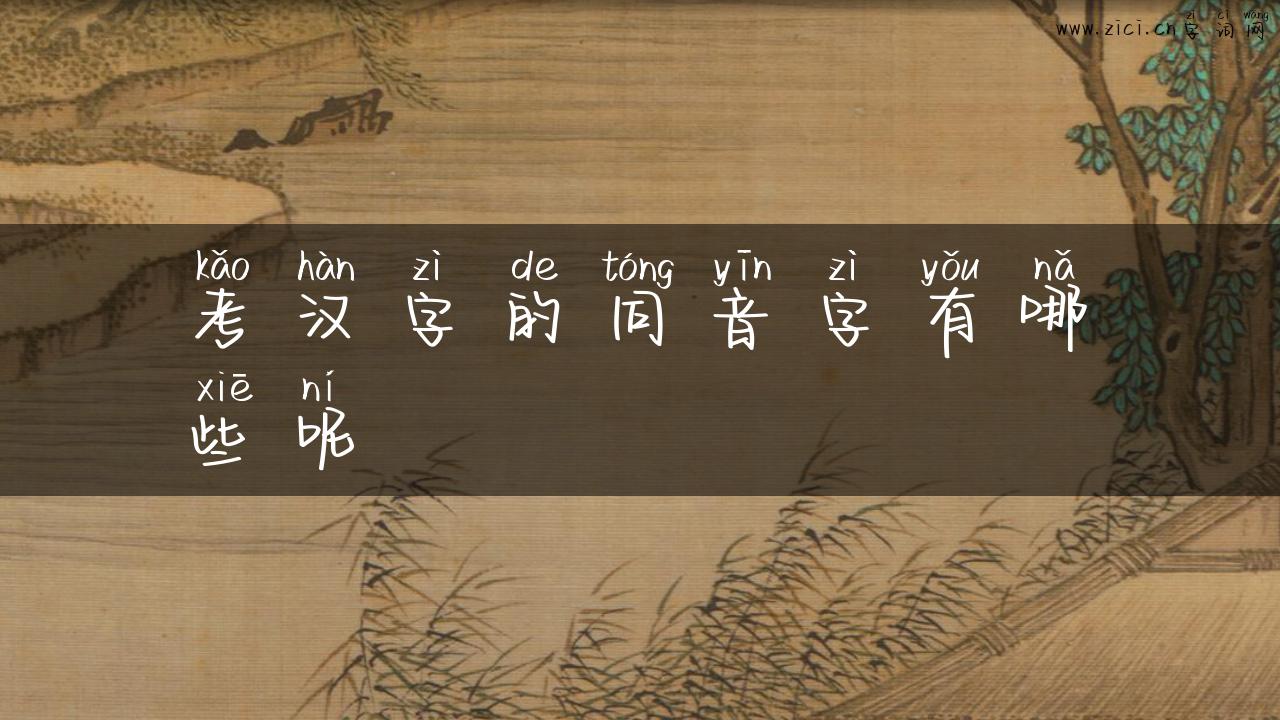 zì cí wǎng
www.zici.cn字词网
kǎo hàn zì de tóng yīn zì yǒu nǎ
考汉字的同音字有哪
xiē ní
些呢